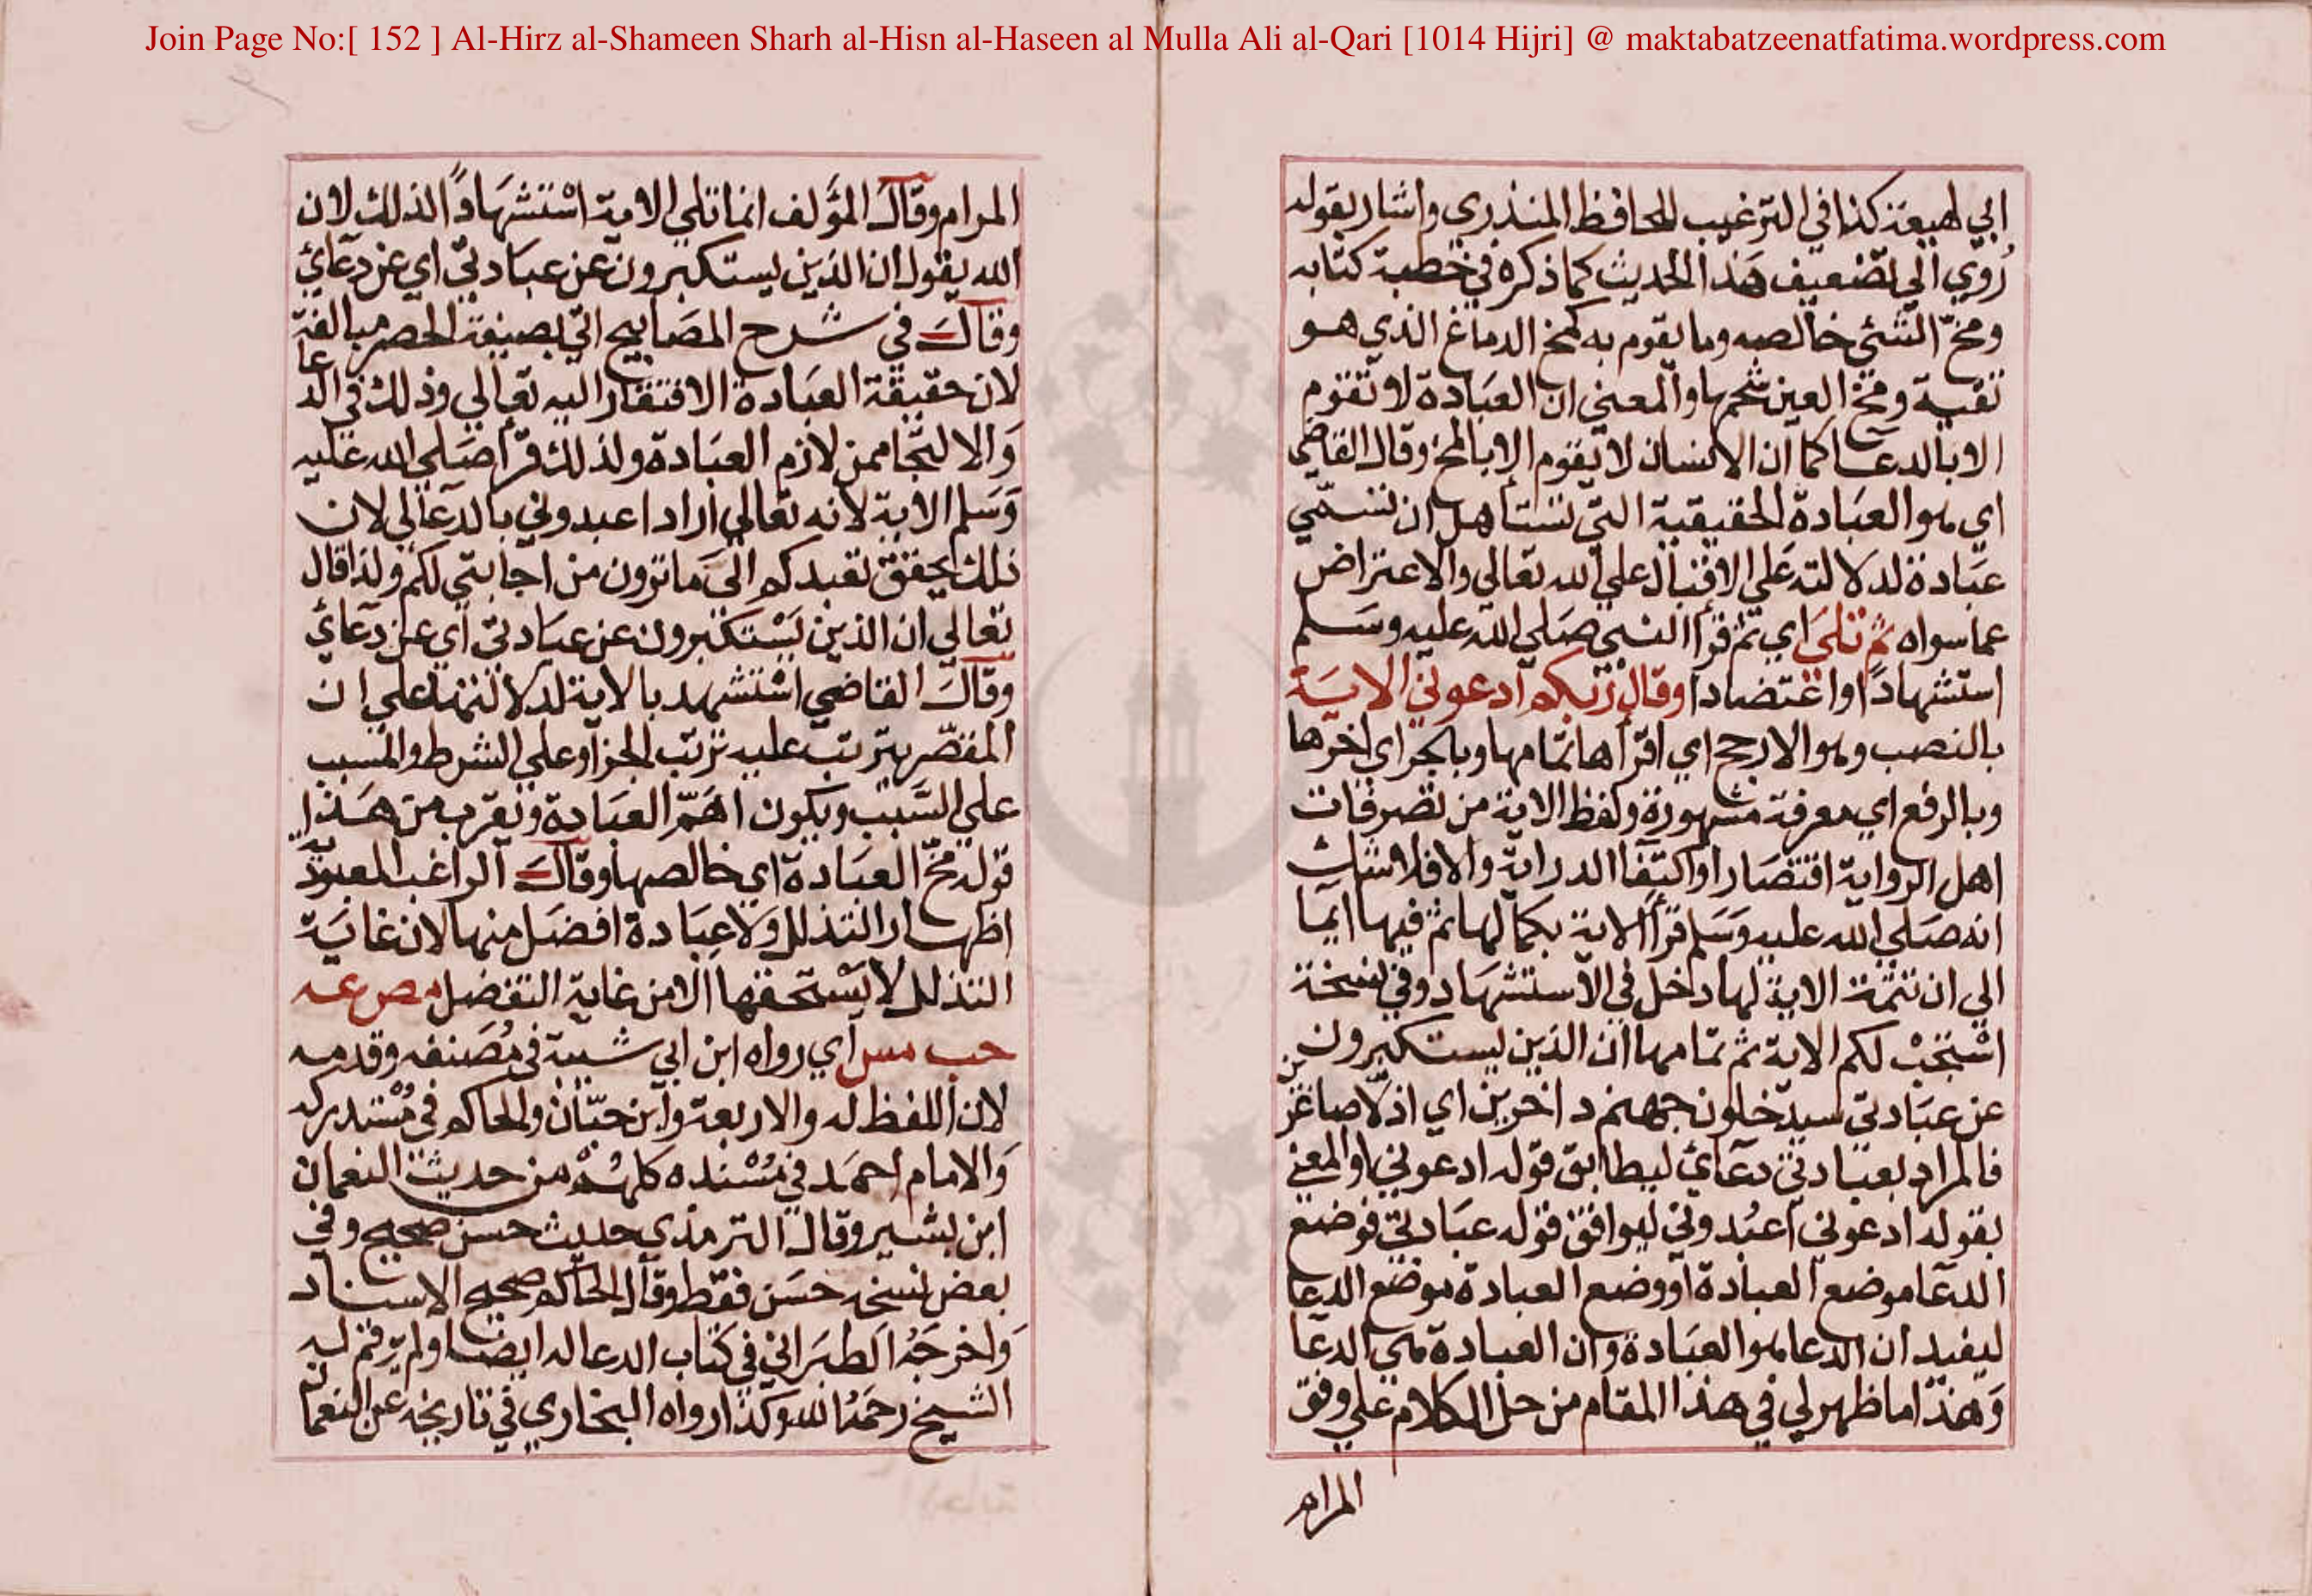 Join Page No:[ 152 ] Al-Hirz al-Shameen Sharh al-Hisn al-Haseen al Mulla Ali al-Qari [1014 Hijri] @ maktabatzeenatfatima.wordpress.com
ابي لهيعة كذا في الترغيب للحافظ المنذري واشار بقوله
رُوي الي تضعيف هذا الحديث كما ذكره في خطبة كتابه
ومخ الشئي خالصه وما يقوم به كمخ الدماغ الذي هو
نقيه ومخ العين شحمها والمعني ان العبادة لا تقوم
الا بالدعا كما ان الانسان لا يقوم الا بالمخ وقال القاضي
اي هو العبادة الحقيقية التي تستأهل ان تسمي
عبادة لدلالته علي الاقبال علي الله تعالي والاعتراض
عما سواه ثم تلي اي ثم قرأ النبي صلي الله عليه وسلم
استشهاداً او اعتضادا وقال ربكم ادعوني الاية
بالنصب وهو الارجح اي اقرأها بتمامها وبالجر اي اخرها
وبالرفع اي معرفة مشهورة ولفظ الاية من تصرفات
اهل الرواية اقتصارا واكتفا الدراية والا فلا شك
انه صلي الله عليه وسلم قرأ الاية بكمالها ثم فيها ايما
الي ان تتمة الاية لها دخل في الاستشهاد وفي نسخة
اسْتجبْ لكم الاية ثم تمامها ان الذين يستكبرون
عن عبادتي سيدخلون جهنم داخرين اي اذلا صاغرين
فالمراد بعبادتي دعائ ليطابق قوله ادعوني او المعني
بقوله ادعوني اعبُدوني ليوافق قوله عبادتي فوضع
الدعا موضع العبادة او وضع العبادة موضع الدعا
ليفيد ان الدعا هو العبادة وان العبادة هي الدعا
وهذا ما ظهر لي في هذا المقام من حل الكلام علي وفق
المرام
المرام وقال المؤلف انما تلي الاية اسْتشهاداً لذلك لان
الله يقول ان الذين يستكبرون عن عبادتي اي عن دعائ
وقال في شرح المصابيح اتي بصيغة الحصر مبالغة
لان حقيقة العبادة الافتقار اليه تعالي وذلك في الدعا
والالتجا ممن لازم العبادة ولذلك قرأ صلي الله عليه
وسلم الاية لانه تعالي اراد اعبدوني بالدعا لي لان
ذلك يحقق تعبدكم الي ما ترون من اجابتي لكم ولذا قال
تعالي ان الذين يسْتكبرون عن عبادتي اي عن دعائ
وقال القاضي اسْتشهد بالاية لدلالتها علي ان
المقصر يترتب عليه ترتب الجزاء علي الشرط والمسبب
علي السبب ويكون اهم العبادة ويقرب من هذا
قوله مخ العبادة اي خالصها وقال الراغب العبودية
اظهار التذلل ولا عبادة افضل منها لان غاية
التذلل لا يسْتحقها الا من غاية التفضل مص عه
حب مس اي رواه ابن ابي شيبة في مُصنفه وقدمه
لان اللفظ له والاربعة وابن حبان والحاكم في مُسْتدركه
والامام احمد في مُسْنده كلهُمْ من حديث النعمان
ابن بشير وقال الترمذي حديث حسن صحيح وفي
بعض نسخه حسن فقط وقال الحاكم صحيح الاسناد
واخرجهُ الطبراني في كتاب الدعا له ايضا ولم يرقم له
الشيخ رحمهُ الله وكذا رواه البخاري في تاريخه عن النعمان